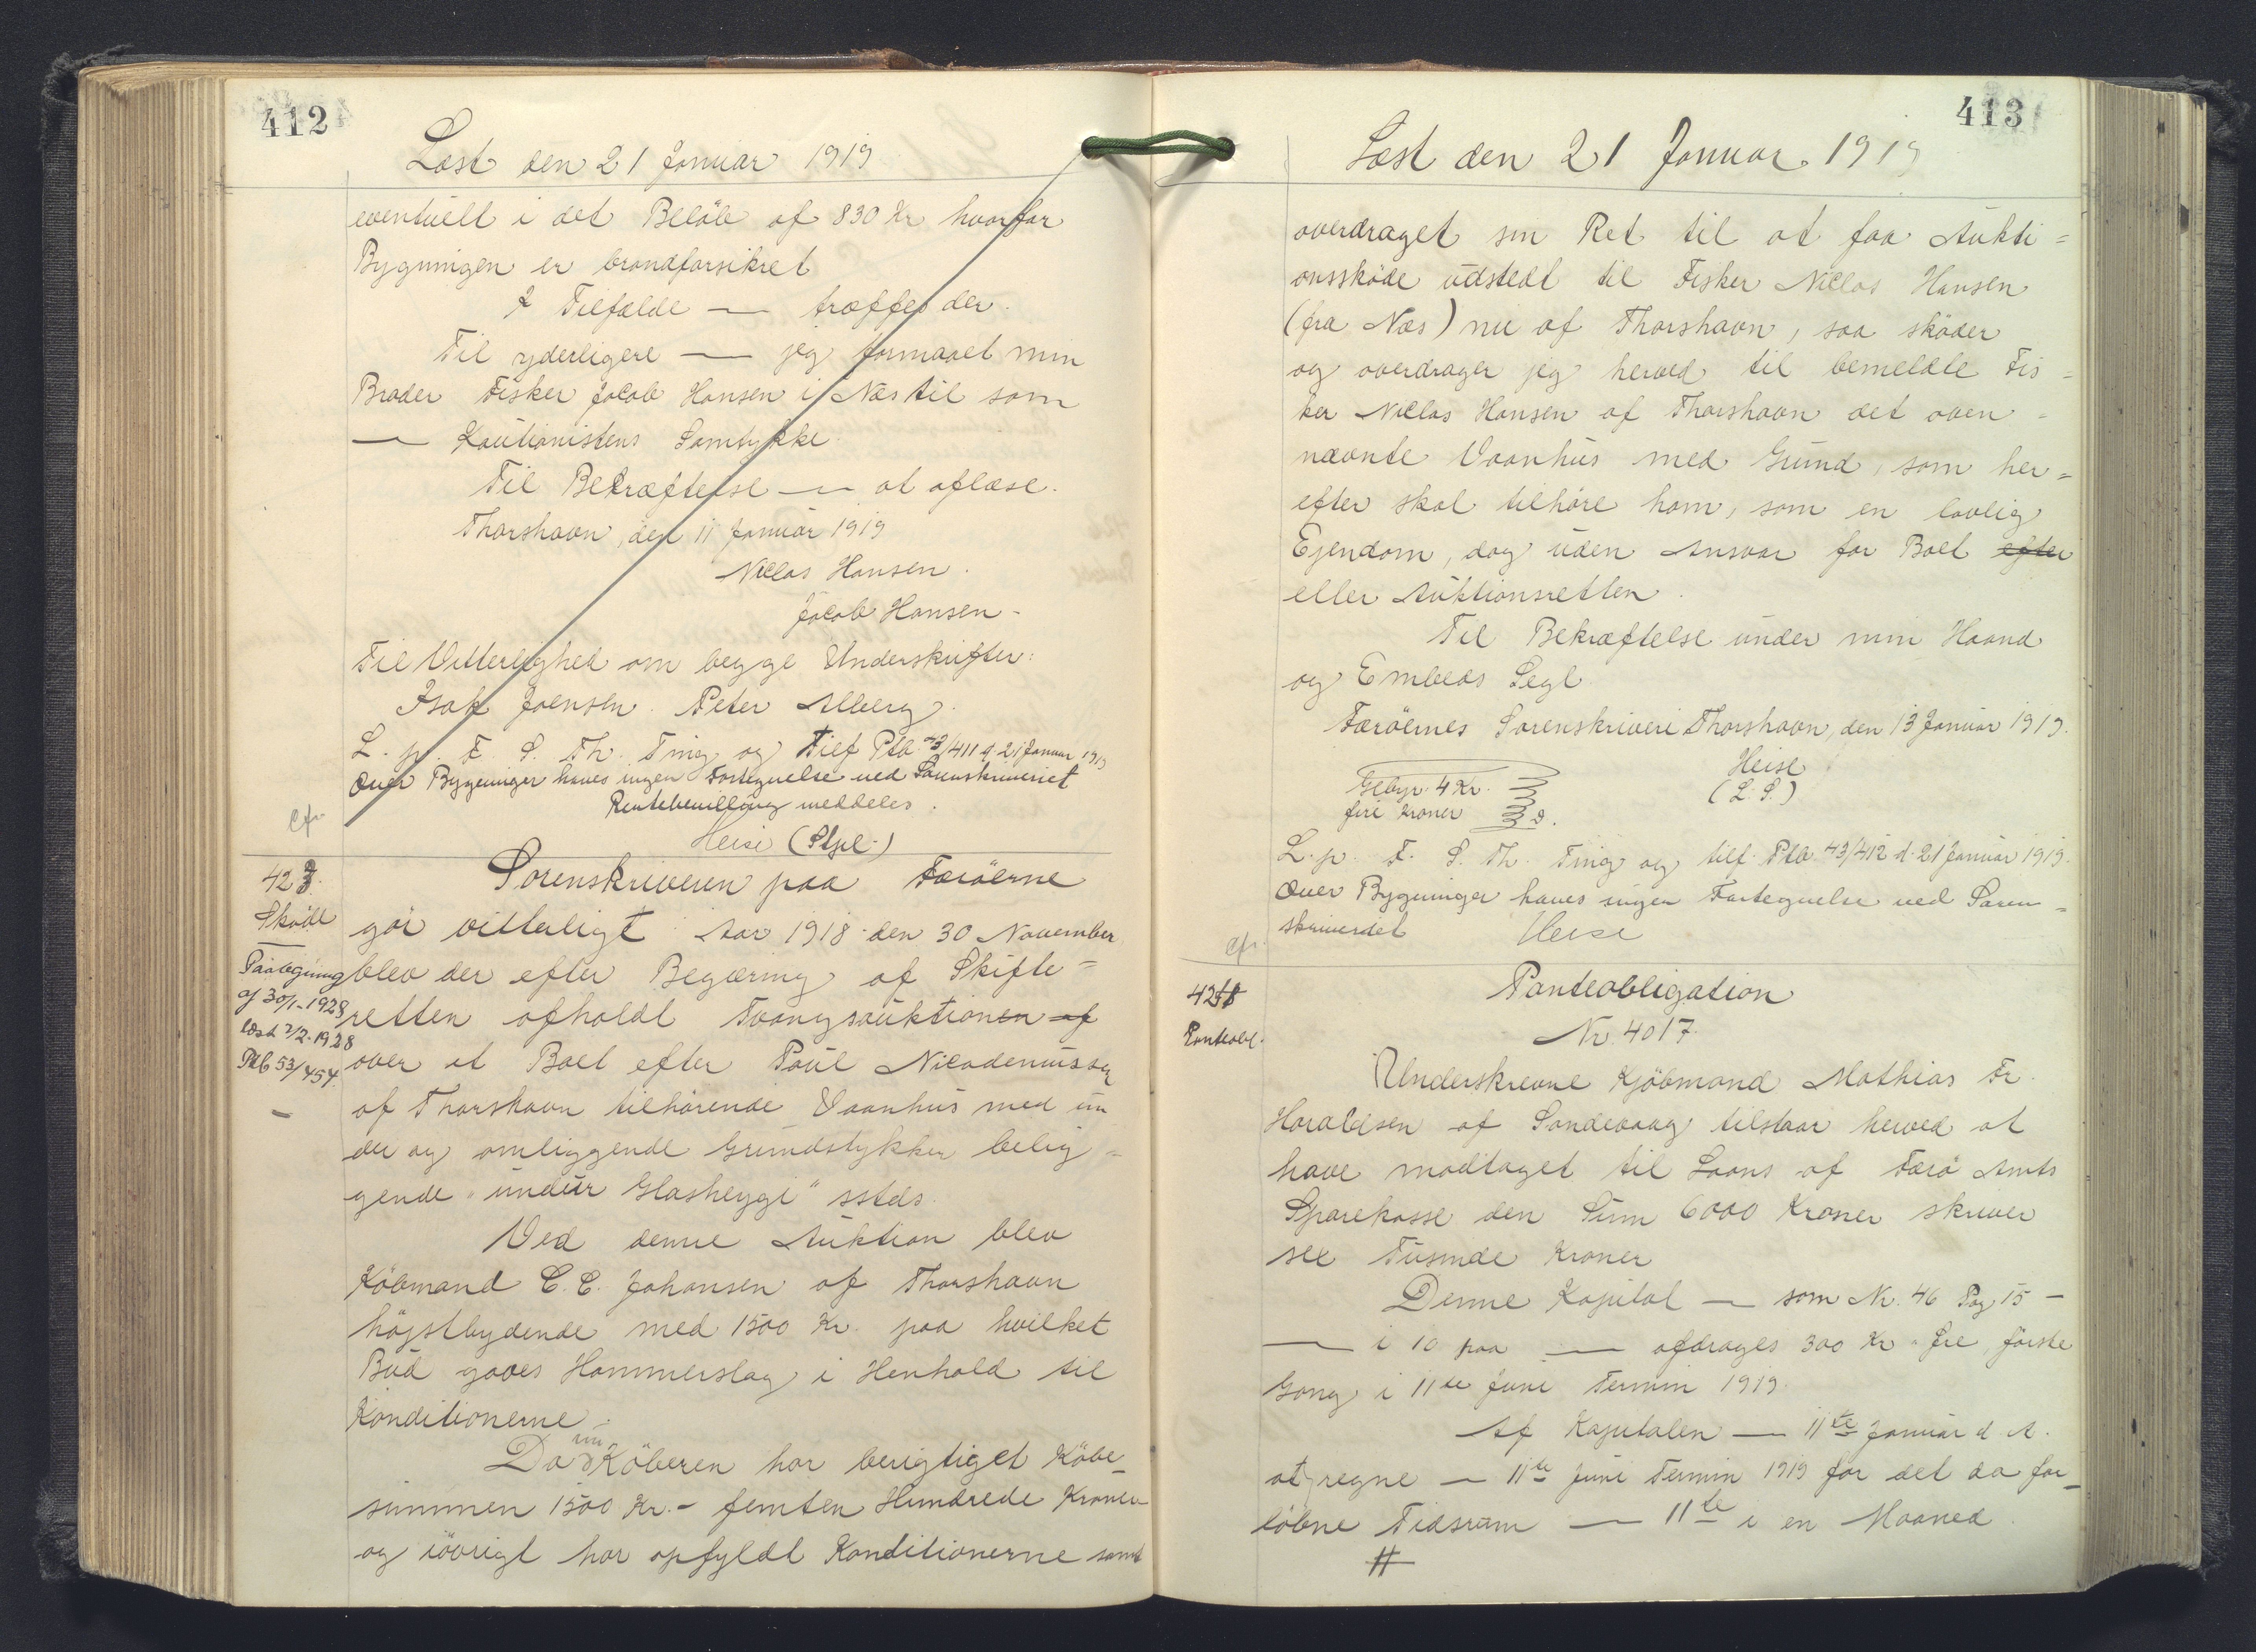 412
Læst den 21 Januar 1919
eventuelt i det Beløb af 830 Kr hvorfor
Bygningen er brandforsikret
I Tilfælde — træffes der.
Til yderligere — jeg formaaet min
Broder Fisker Jacob Hansen i Næs til som
— Kautionistens Samtykke
Til Bekræftelse — at aflæse.
Thorshavn, den 11 Januar 1919
Niclas Hansen.
Jacob Hansen.
Til Vitterlighed om begge Underskrifter:
Isak Joensen. Peter Alberg.
L. p. F. S. Th. Ting og tilf Ptb. 43/411 d. 21 Januar 1919
Over Bygninger haves ingen Fortegnelse ved Sorenskriveriet
Rentebevilling meddeles.
Heise (Stpl.)
cfr.
423.
Sköde
Paategning
af 30/1-1928
læst 2/2-1928
Ptb 53/454
Sorenskriveren paa Færöerne
gör vitterligt: Aar 1918 den 30 November
blev der efter Begæring af Skifte=
retten afholdt Tvangsauktionen af
over et Boet efter Poul Nicodemussen
af Thorshavn tilhörende Vaanhus med un
der og omliggende Grundstykker belig=
gende "undir Glasheyggi" sstds.
Ved denne Auktion blev
Köbmand C. C. Johansen af Thorshavn
höjstbydende med 1500 Kr. paa hvilket
Bud gaves Hammerslag i Henhold til
Konditionerne.
Da nu Köberen har berigtiget Köbe=
summen 1500 Kr. - femten Hundrede Kroner
og iövrigt har opfyldt Konditionerne samt
413
Læst den 21 Januar 1919
overdraget sin Ret til at faa Aukti=
onssköde udstedt til Fisker Niclas Hansen
(fra Næs) nu af Thorshavn, saa sköder
og overdrager jeg herved til bemeldte Fis=
ker Niclas Hansen af Thorshavn det oven=
nævnte Vaanhus med Grund, som her=
efter skal tilhöre ham, som en lovlig
Ejendom, dog uden Ansvar for Boet efter
eller Auktionsretten.
Til Bekræftelse under min Haand
og Embeds Segl.
Færöernes Sorenskriveri Thorshavn, den 13 Januar 1919.
Heise
(L. S.)
Gebyr 4 Kr.
fire Kroner
L. p. F. S. Th. Ting og tilf. Ptb. 43/412 d. 21 Januar 1919.
Over Bygninger haves ingen Fortegnelse ved Soren=
skriveriet Heise
cfr.
424
Panteobl.
Panteobligation
Nr. 4017
Underskrevne Kjöbmand Mathias Fr.
Haraldsen af Sandevaag tilstaar herved at
have modtaget til Laans af Færö Amts
Sparekasse den Sum 6000 Kroner skriver
sex Tusinde Kroner
Denne Kapital — som Nr. 46 Pag 15 —
— i 10 paa — afdrages 300 Kr. fre förste
Gang i 11te Juni Termin 1919.
Af Kapitalen — 11te Januar d. A.
at regne — 11te Juni Termin 1919 for det da for=
löbne Tidsrum — 11te i en Maaned.
#